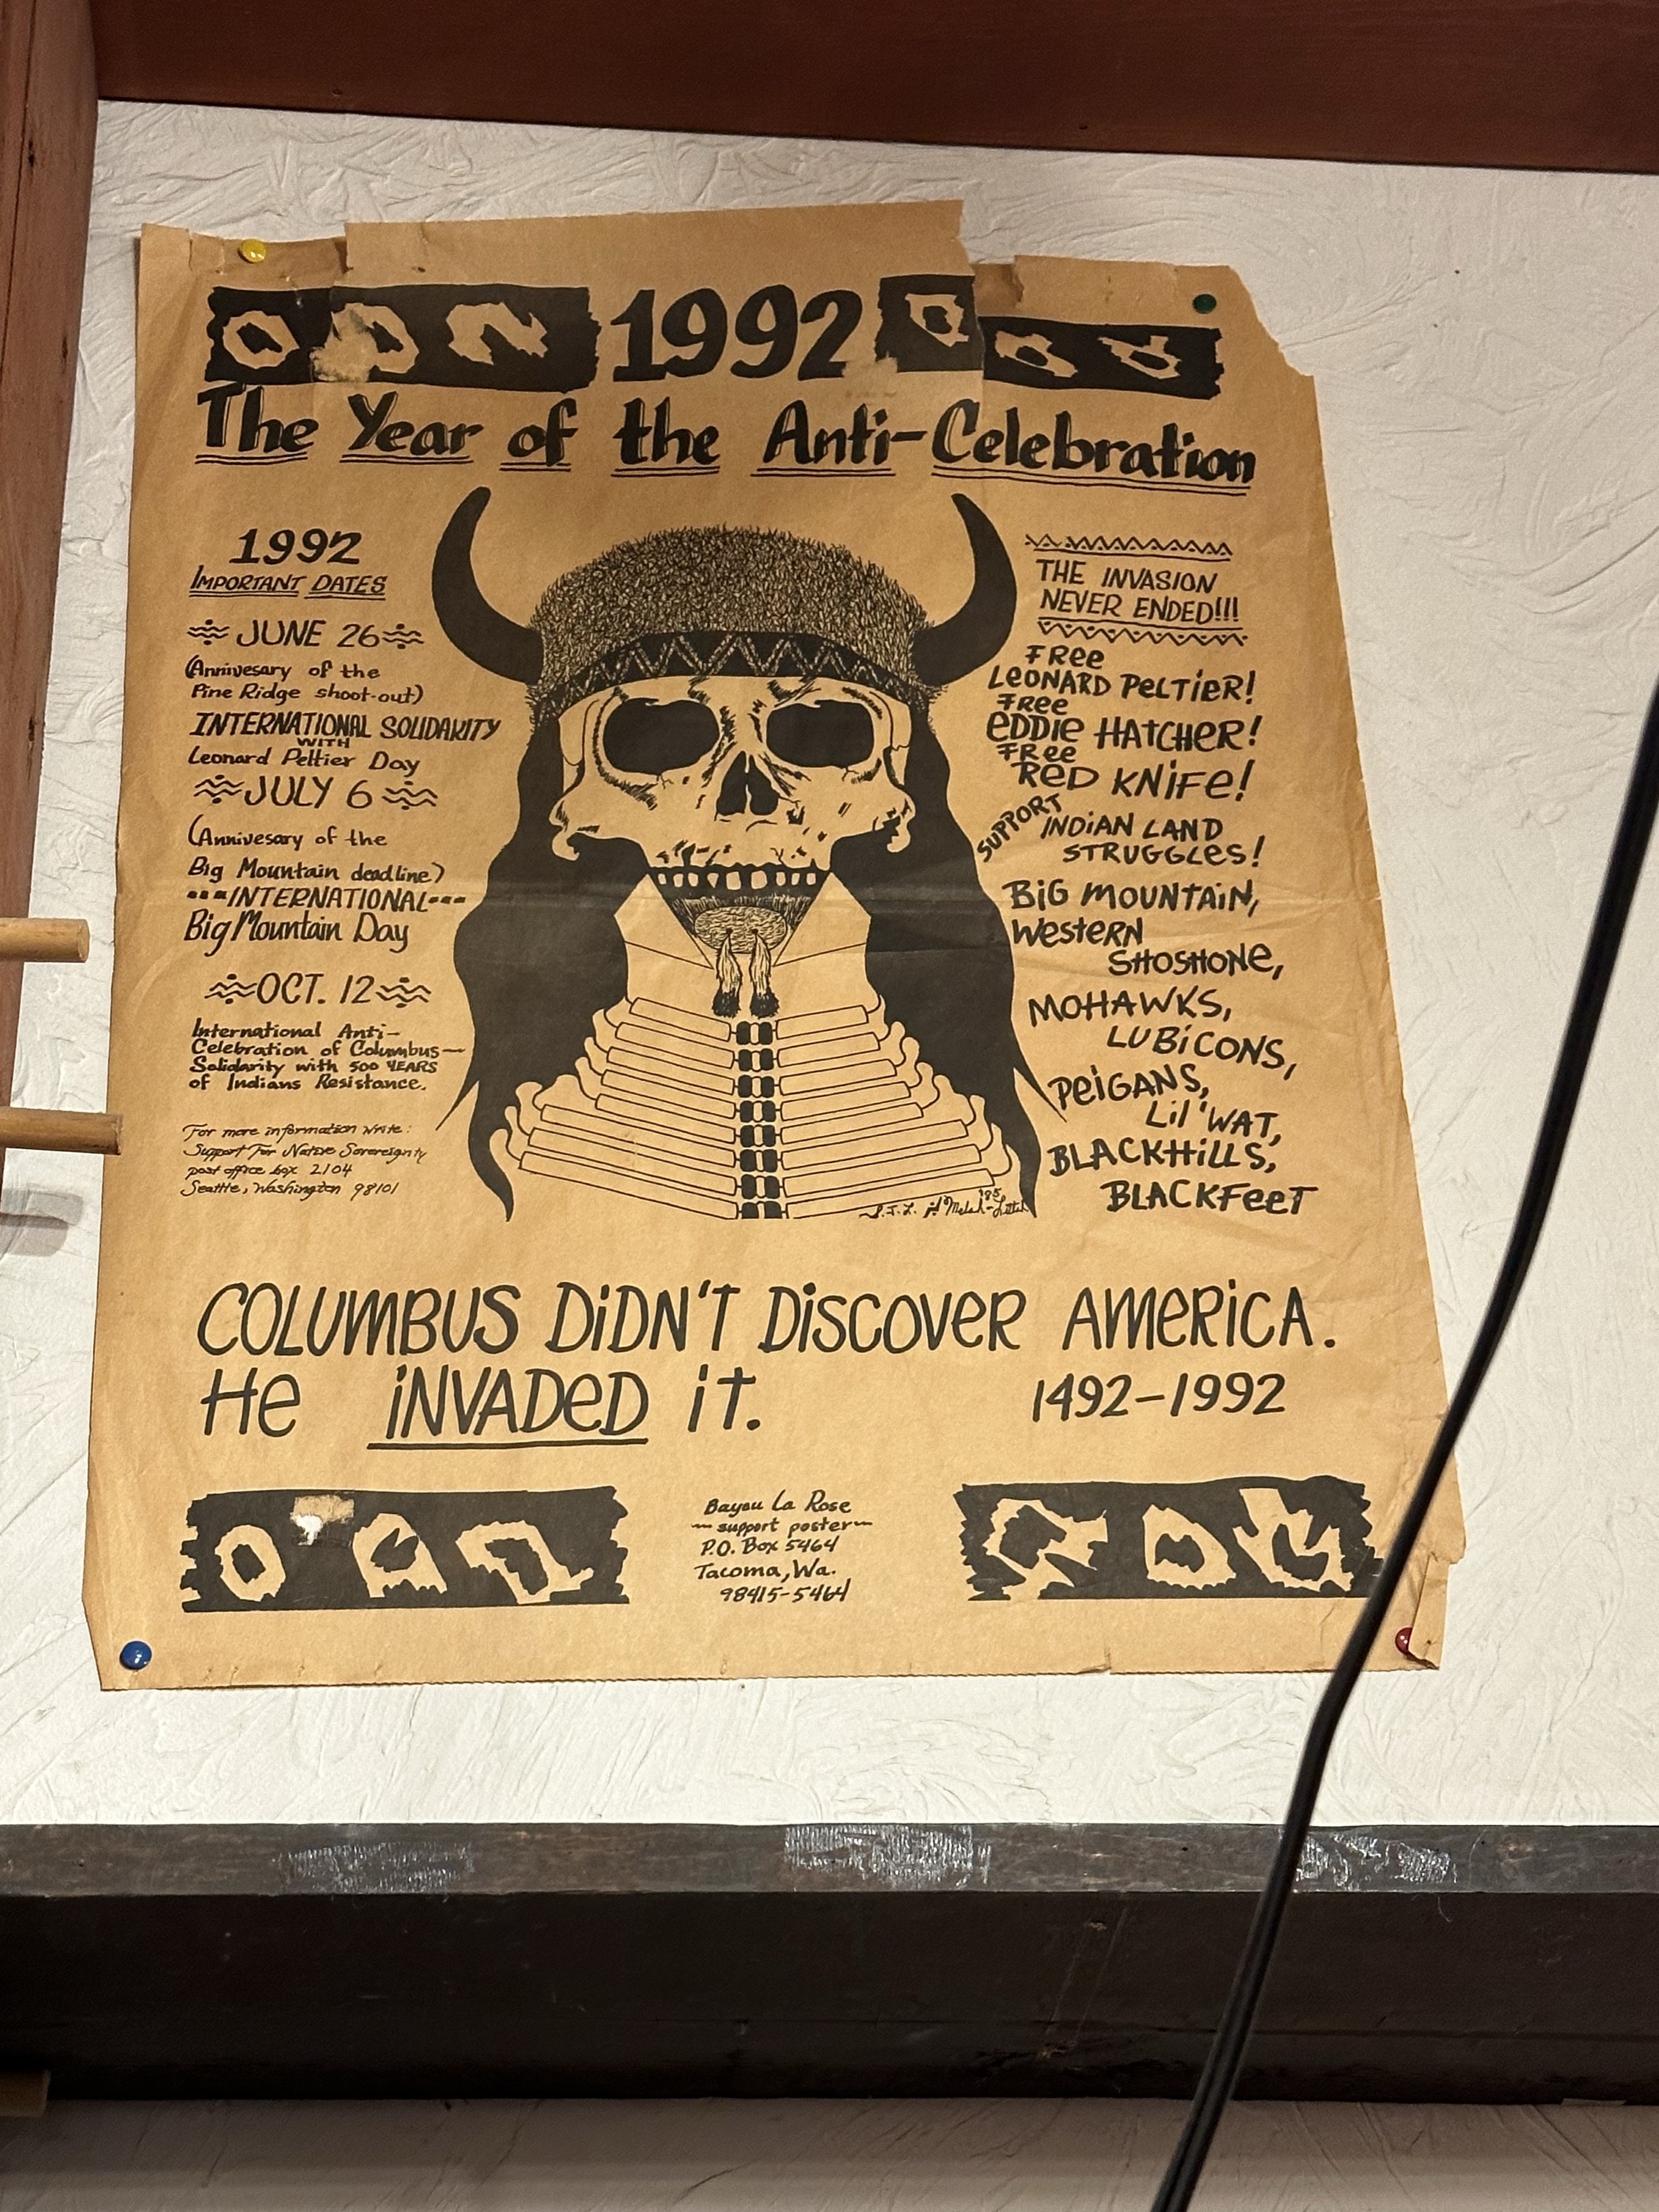 1992
The Year of the Anti-Celebration
1992
IMPORTANT DATES
JUNE 26
(Annivesary of the
Pine Ridge shoot-out)
INTERNATIONAL SOLIDARITY
WITH
Leonard Peltier Day
JULY 6
(Annivesary of the
Big Mountain deadline)
INTERNATIONAL
Big Mountain Day
OCT. 12
International Anti-
Celebration of Columbus—
Solidarity with 500 YEARS
of Indians Resistance.
For more information write:
Support For Native Sovereignty
post office box 2104
Seattle, Washington 98101
THE INVASION
NEVER ENDED!!!
FRee
LeONARD PeLTieR!
FRee
eDDie HATCHeR!
FRee
ReD KNiFe!
SUPPORT
iNDiAN LAND
STRUGGLeS!
BiG MOUNTAiN,
WeSTeRN
SHOSHONe,
MOHAWKS,
LUBiCONS,
PeiGANS,
Lil'WAT,
BLACKHiLLS,
BLACKFeeT
'85
COLUMBUS DiDN'T DiSCOVeR AMeRiCA.
He iNVADeD iT.
1492–1992
Bayou La Rose
—support poster—
P.O. Box 5464
Tacoma, Wa.
98415-5464